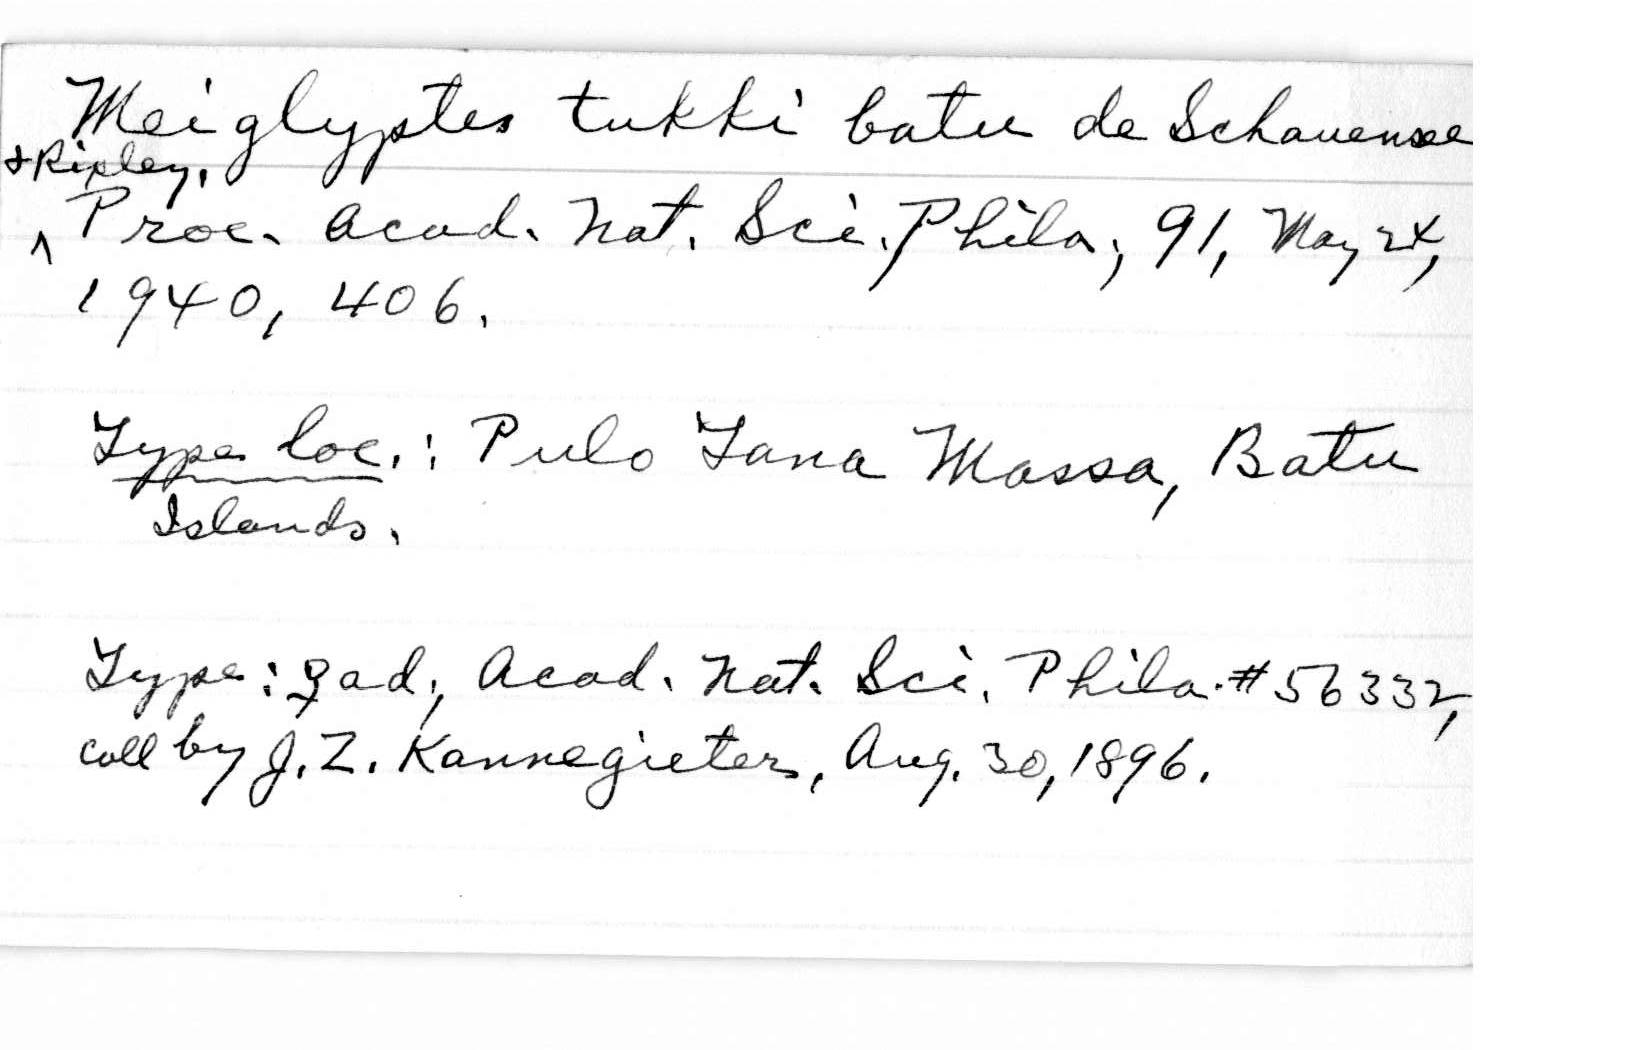 Meiglyptes tukki batu de Schauensee
& Ripley,
Proc. Acad. Nat. Sci. Phila., 91, May 24,
1940, 406.
Type loc.: Pulo Tana Massa, Batu
Islands.
Type: ♀ ad., Acad. Nat. Sci. Phila. #56332,
coll by J. Z. Kannegieter, Aug. 30, 1896.